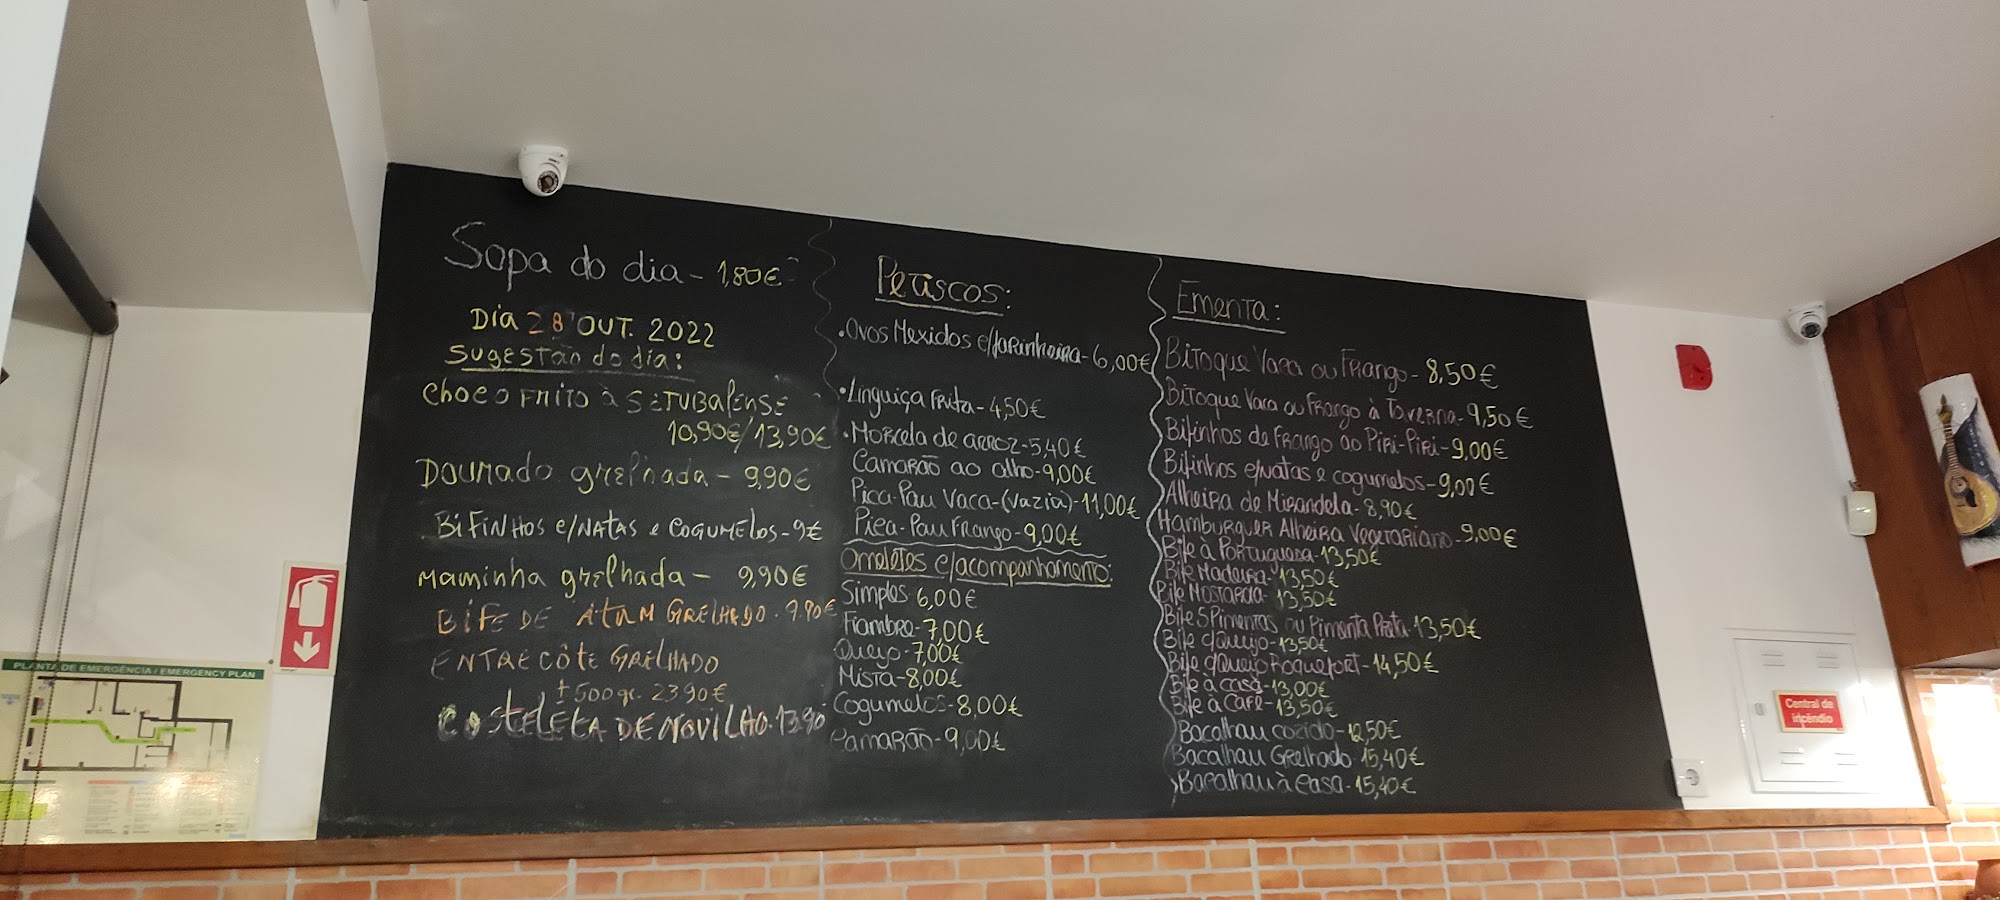 Sopa do dia - 1,80€
Dia 28 OUT. 2022
Sugestão do dia:
Choco Frito à Setubalense
10,90€/13,90€
Dourado grelhada - 9,90€
Bifinhos c/natas e cogumelos - 9€
Maminha grelhada - 9,90€
Bife de atum grelhado. 9.90€
Entrecôte grelhado
±500gr. 23.90€
Costeleta de novilho. 13.90
Petiscos:
• Ovos Mexidos c/farinheira - 6,00€
• Linguiça Frita - 4,50€
• Morcela de arroz - 5,40€
Camarão ao alho - 9,00€
Pica-Pau Vaca - (vazia) - 11,00€
Pica-Pau Frango - 9,00€
Omeletes c/acompanhamento:
Simples 6,00€
Fiambre - 7,00€
Queijo - 7,00€
Mista - 8,00€
Cogumelos - 8,00€
Camarão - 9,00€
Ementa:
Bitoque Vaca ou Frango - 8,50€
Bitoque Vaca ou Frango à Taverna - 9,50€
Bifinhos de Frango ao Piri-Piri - 9,00€
Bifinhos c/natas e cogumelos - 9,00€
Alheira de Mirandela - 8,90€
Hamburguer Alheira Vegetariano - 9,00€
Bife à Portuguesa - 13,50€
Bife Madeira - 13,50€
Bife Mostarda - 13,50€
Bife 5 Pimentas ou Pimenta Preta - 13,50€
Bife c/queijo - 13,50€
Bife c/queijo Roquefort - 14,50€
Bife à casa - 13,00€
Bife à café - 13,50€
Bacalhau cozido - 12,50€
Bacalhau Grelhado 15,40€
Bacalhau à casa - 15,40€
PLANTA DE EMERGÊNCIA / EMERGENCY PLAN
Central de
incêndio